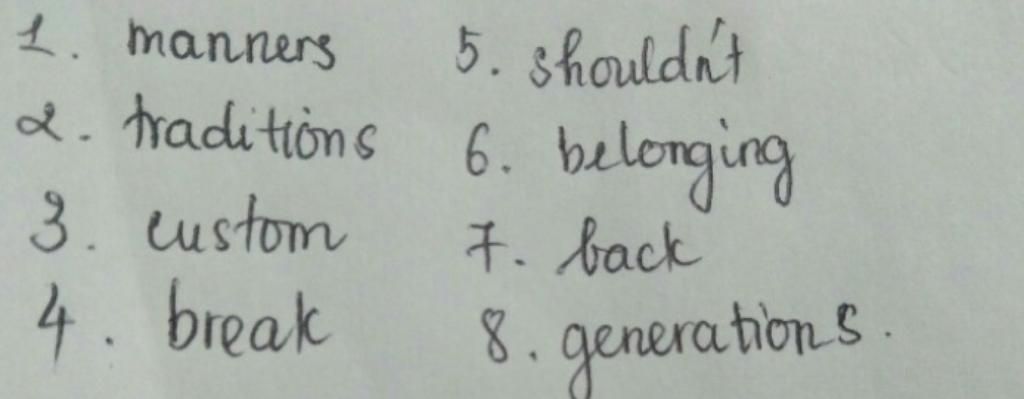 1. manners
2. traditions
3. custom
4. break
5. shouldn't
6. belonging
7. back
8. generations.